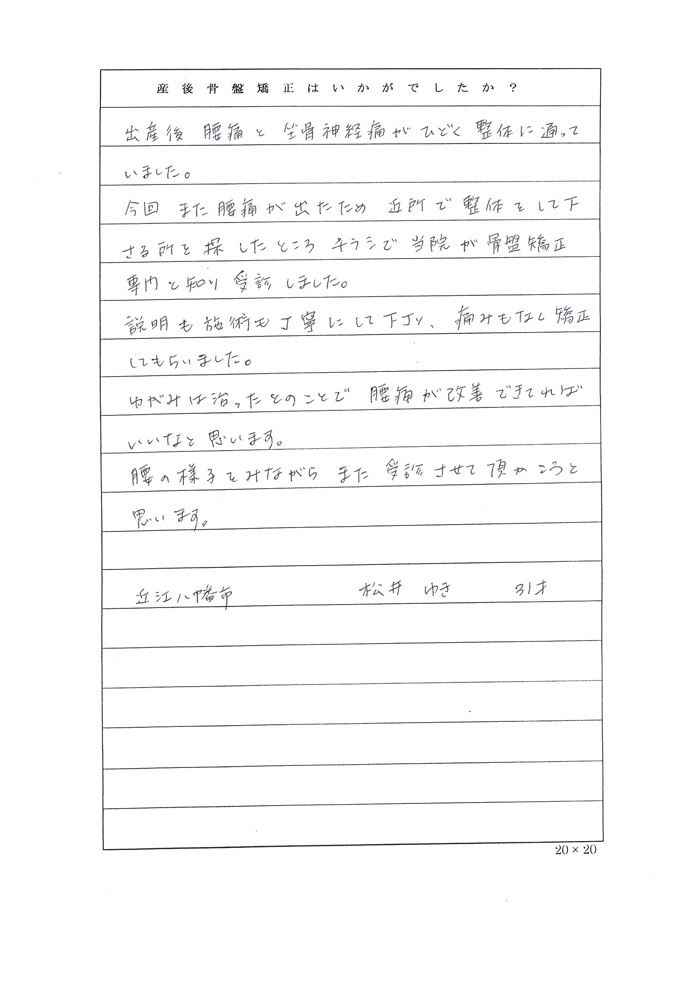 産後骨盤矯正はいかがでしたか？
出産後 腰痛と 坐骨神経痛が ひどく 整体に通って
いました。
今回 また腰痛が出たため 近所で 整体をして下
さる所を 探 したところ チラシで 当院が 骨盤矯正
専門と知り 受診しました。
説明も施術も丁寧にして下さり、痛みもなく矯正
してもらいました。
ゆがみは治ったとのことで 腰痛が改善できてれば
いいなと思います。
腰の様子をみながら また 受診させて頂かこうと
思います。
近江八幡市 松井 ゆき 31才
20×20